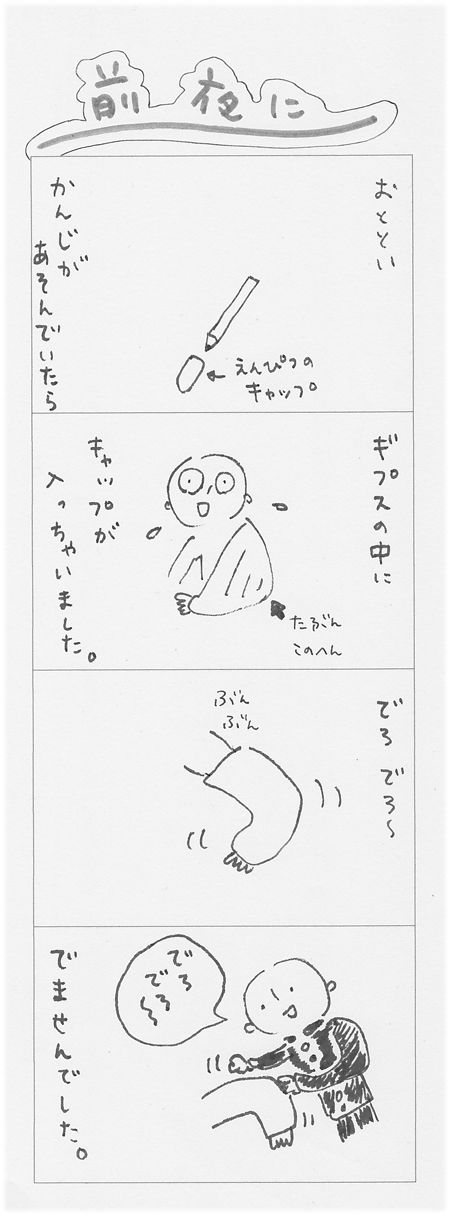 前夜に
おととい
えんぴつの
キャップ
かんじが
あそんでいたら
ギプスの中に
たぶん
このへん
キャップが
入っちゃいました。
でろでろ〜
ぶん
ぶん
でろ
でろ
〜
でませんでした。